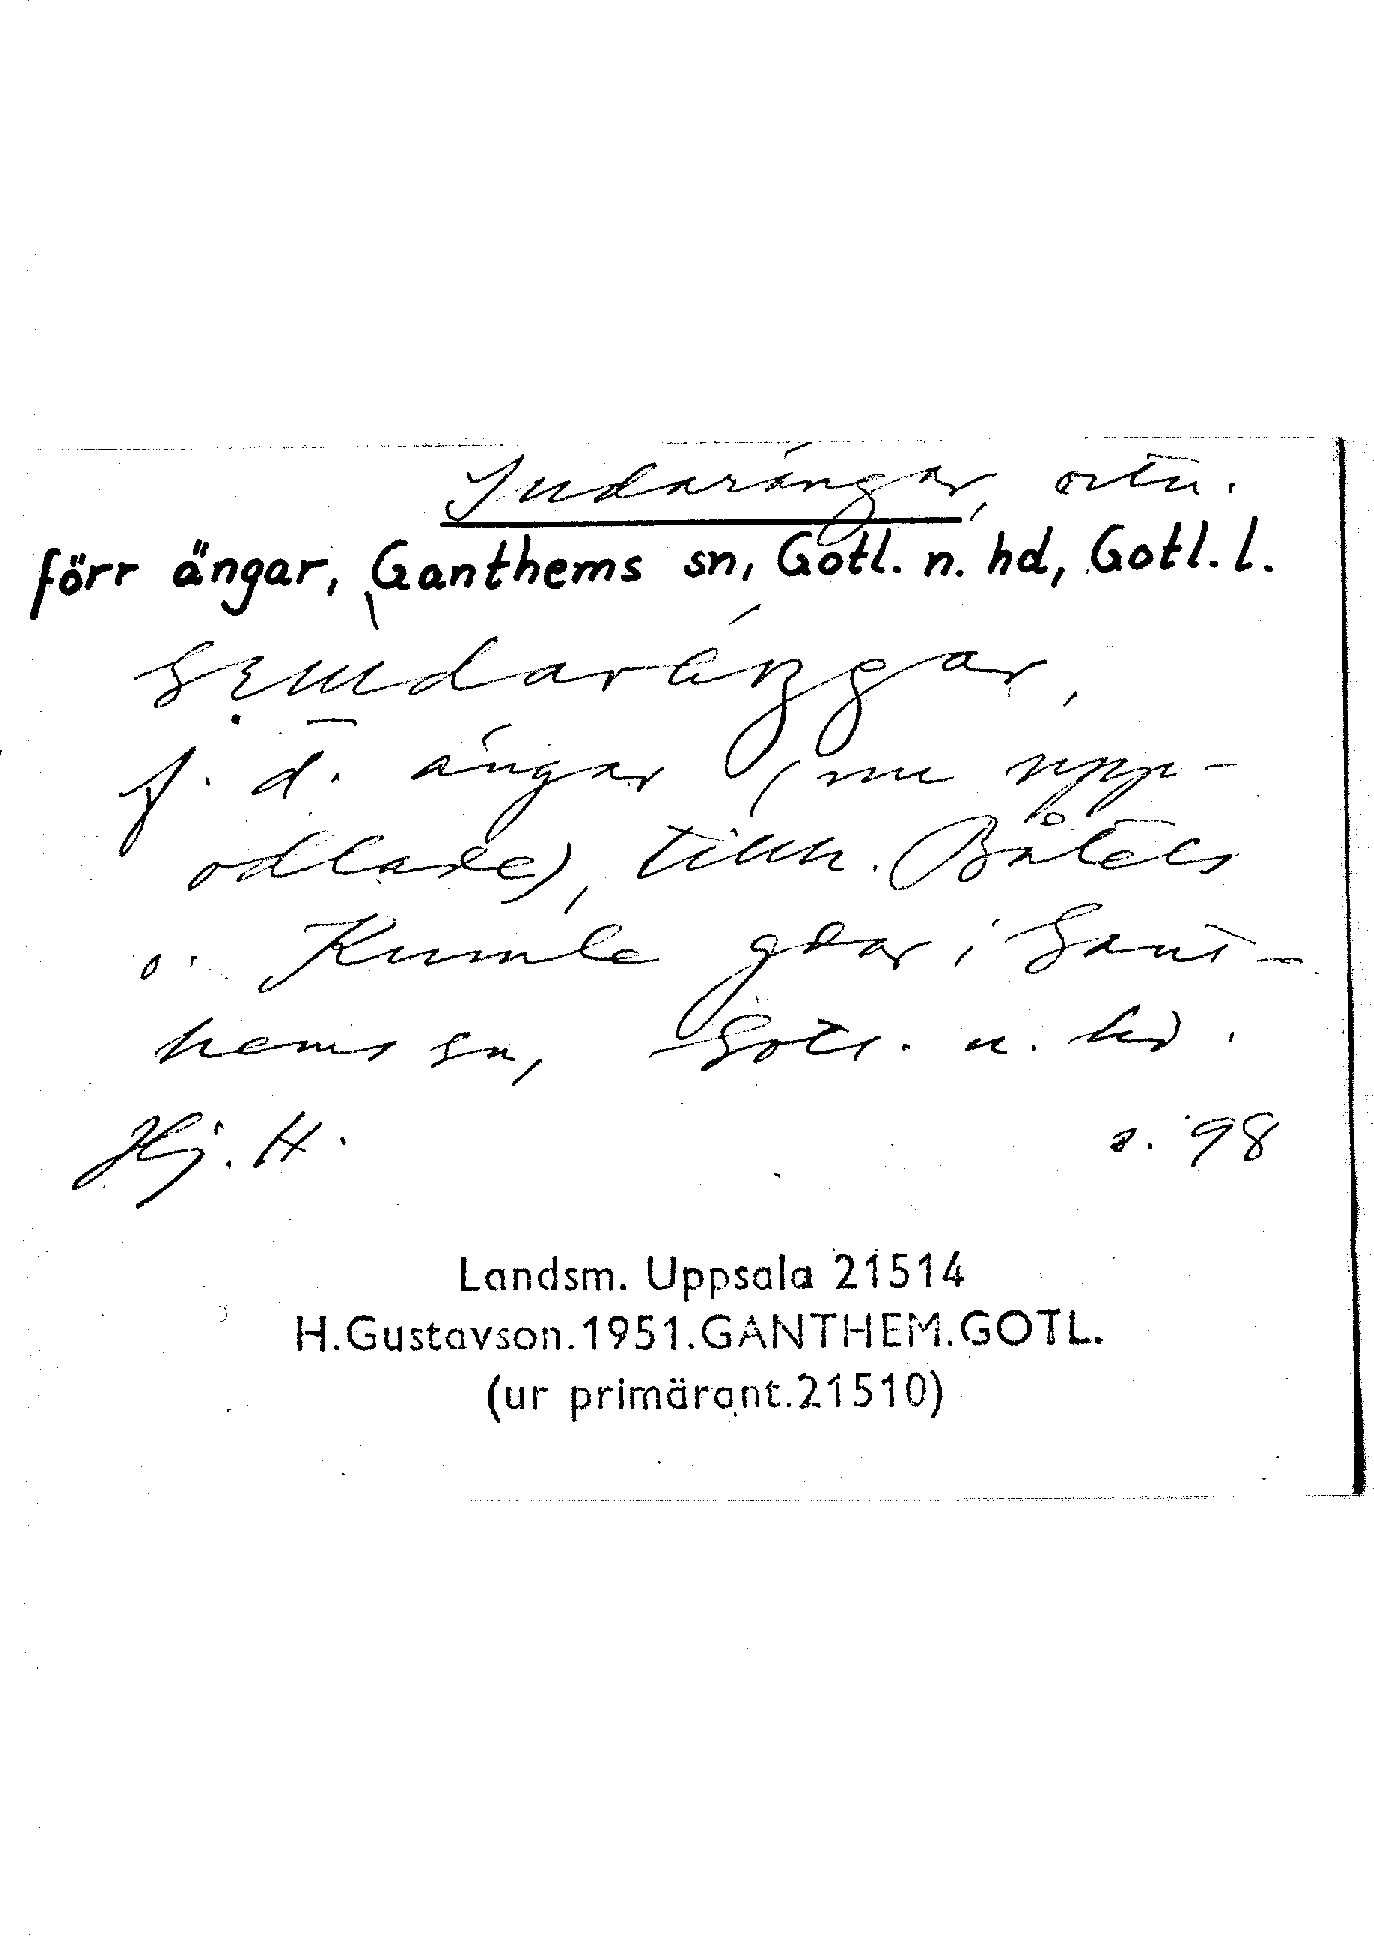 Sudarängar, ortn.
förr ängar, Ganthems sn, Gotl. n. hd, Gotl. l.
f. d. ängar (nu upp-
odlade), tillh. Båtels
o. Kumle gdar i Gant-
hems sn, Gotl. n. hd.
Hj. H. s. 98
Landsm. Uppsala 21514
H.Gustavson.1951.GANTHEM.GOTL.
(ur primärant.21510)